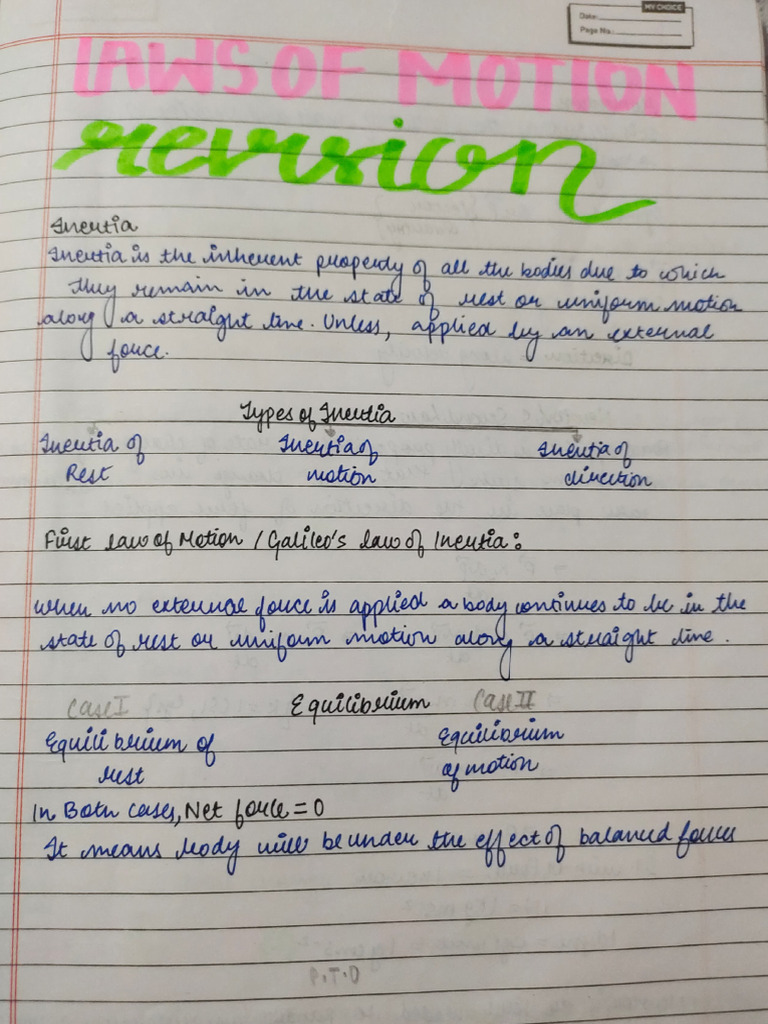 MY CHOICE
Date:
Page No.:
LAWS OF MOTION
revision
Inertia
Inertia is the inherent property of all the bodies due to which
they remain in the state of rest or uniform motion
along a straight line. Unless, applied by an external
force.
Types of Inertia
Inertia of Inertia of Inertia of
Rest motion direction
First law of Motion / Galileo's law of Inertia:
when no external force is applied a body continues to be in the
state of rest or uniform motion along a straight line.
Case I Equilibrium Case II
Equilibrium of Equilibrium
rest of motion
In Both cases, Net force = 0
It means body will be under the effect of balanced forces